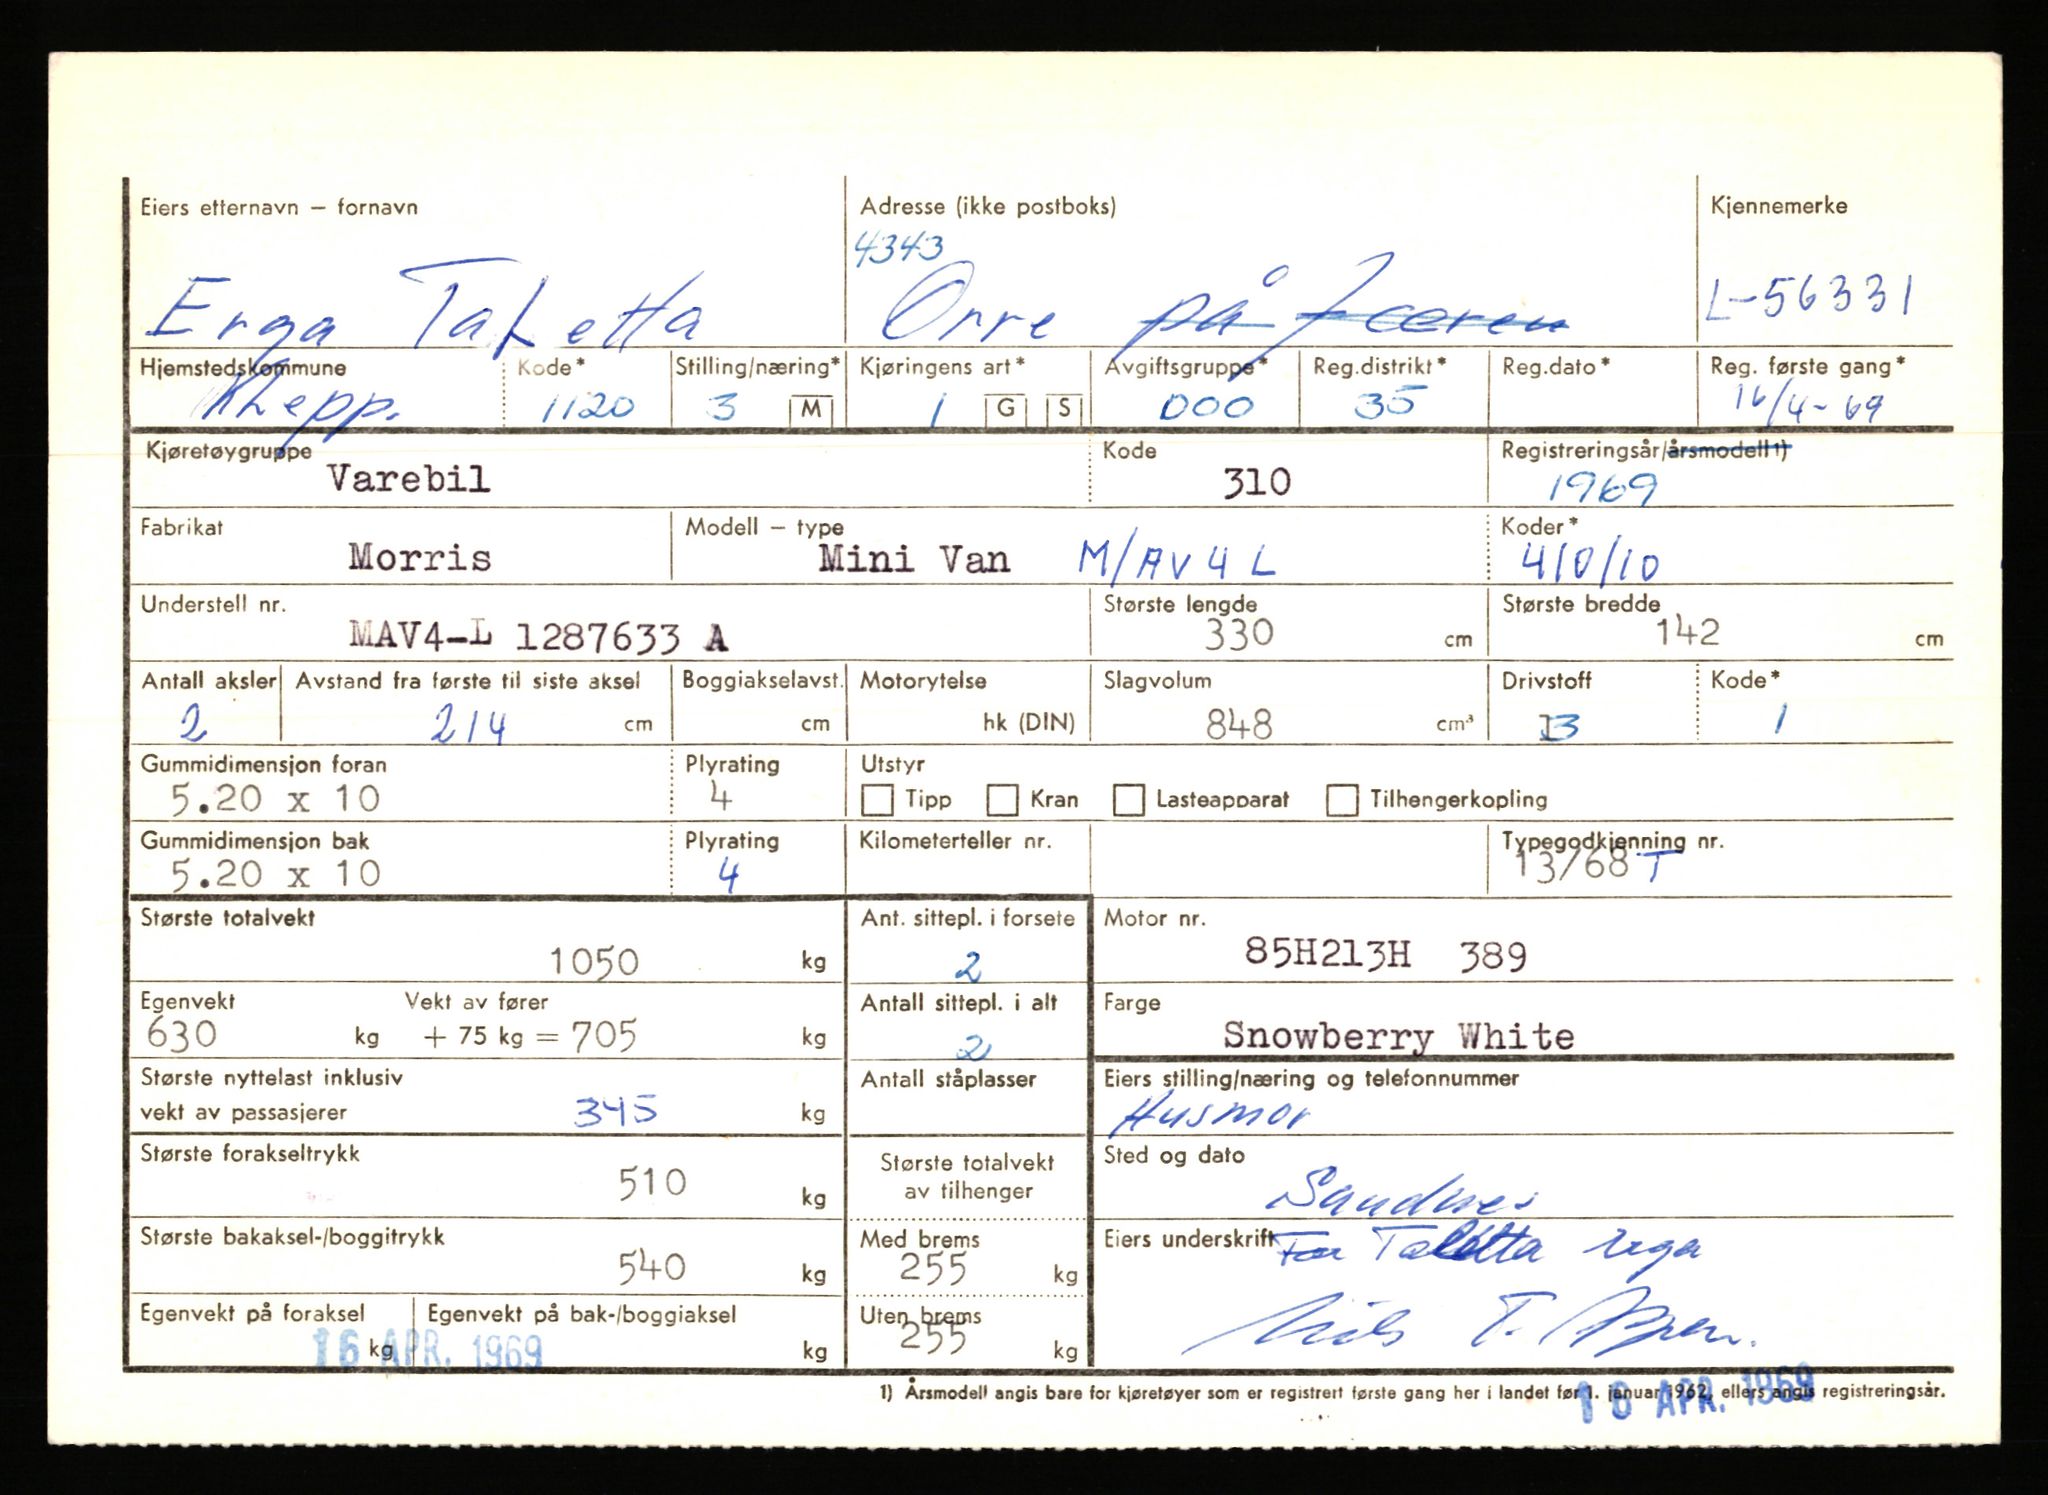 Eiers etternavn – fornavn
Erga Taletta
Adresse (ikke postboks)
4343
Orre på Jæren
Kjennemerke
L-56331
Hjemstedskommune
Klepp.
Kode*
1120
Stilling/næring*
3 M
Kjøringens art*
1 G S
Avgiftsgruppe*
000
Reg.distrikt*
35
Reg.dato*
Reg. første gang*
16/4-69
Kjøretøygruppe
Varebil
Kode
310
Registreringsår/årsmodell 1)
1969
Fabrikat
Morris
Modell – type
Mini Van M/AV4L
Koder*
410/10
Understell nr.
MAV4-L 1287633 A
Største lengde
330 cm
Største bredde
142 cm
Antall aksler
2
Avstand fra første til siste aksel
214 cm
Boggiakselavst.
cm
Motorytelse
hk (DIN)
Slagvolum
848 cm³
Drivstoff
B
Kode*
1
Gummidimensjon foran
5.20 x 10
Plyrating
4
Utstyr
Tipp Kran Lasteapparat Tilhengerkopling
Gummidimensjon bak
5.20 x 10
Plyrating
4
Kilometerteller nr.
Typegodkjenning nr.
13/68 T
Største totalvekt
1050 kg
Ant. sittepl. i forsete
2
Motor nr.
85H213H 389
Egenvekt Vekt av fører
630 kg + 75 kg = 705 kg
Antall sittepl. i alt
2
Farge
Snowberry White
Største nyttelast inklusiv
vekt av passasjerer 345 kg
Antall ståplasser
Eiers stilling/næring og telefonnummer
Husmor
Største forakseltrykk
510 kg
Største totalvekt
av tilhenger
Sted og dato
Sandnes
Største bakaksel-/boggitrykk
540 kg
Med brems
255 kg
Eiers underskrift
For Taletta Erga
Nils T.
Egenvekt på foraksel
kg
Egenvekt på bak-/boggiaksel
kg
16 APR. 1969
Uten brems
255 kg
1) Årsmodell angis bare for kjøretøyer som er registrert første gang her i landet før 1. januar 1962, ellers angis registreringsår.
16 APR. 1969